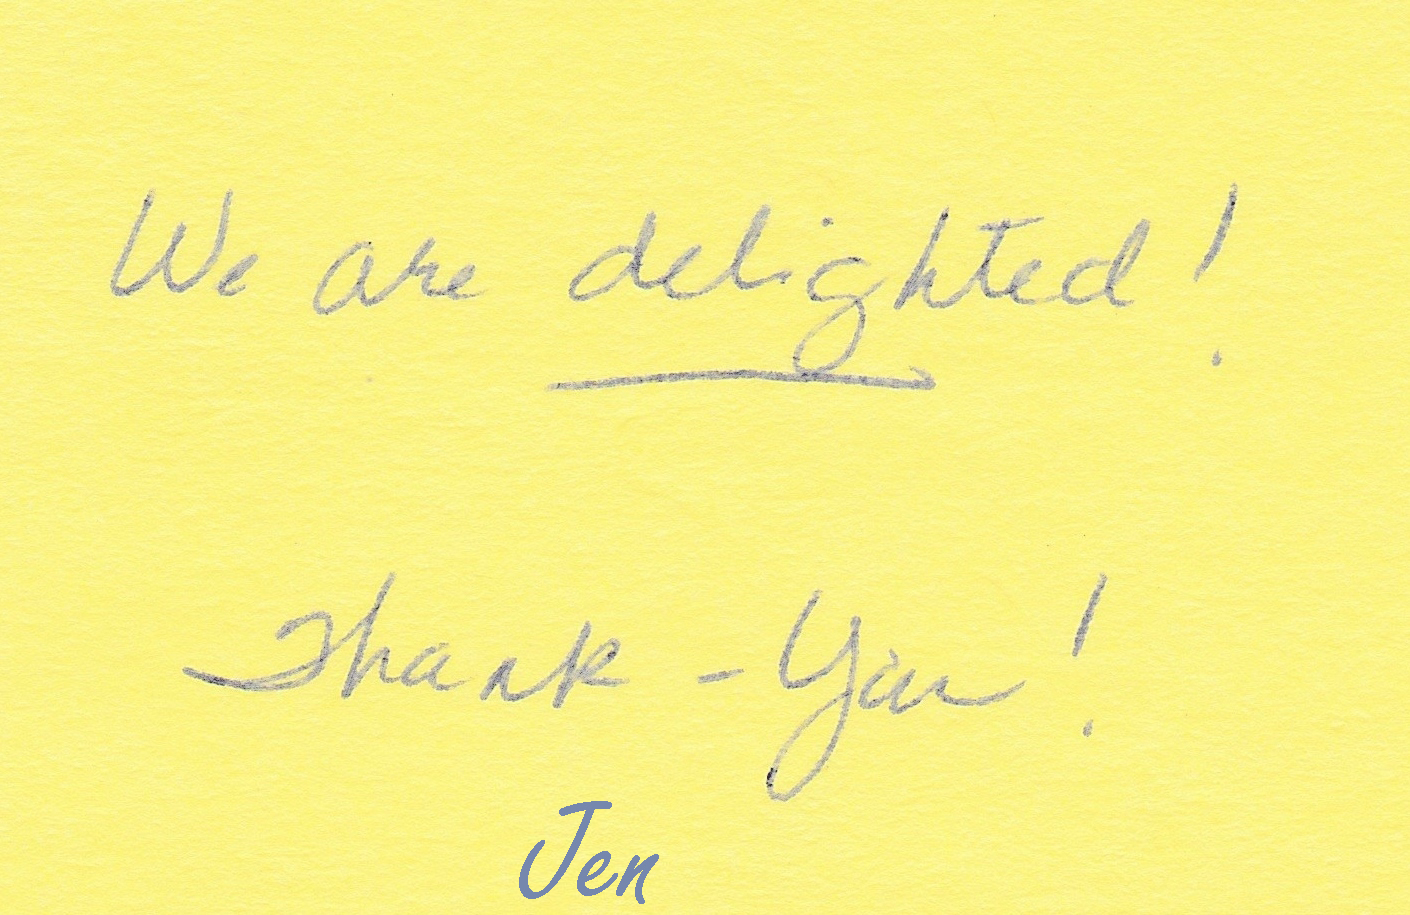 We are delighted!
Thank-You!
Jen